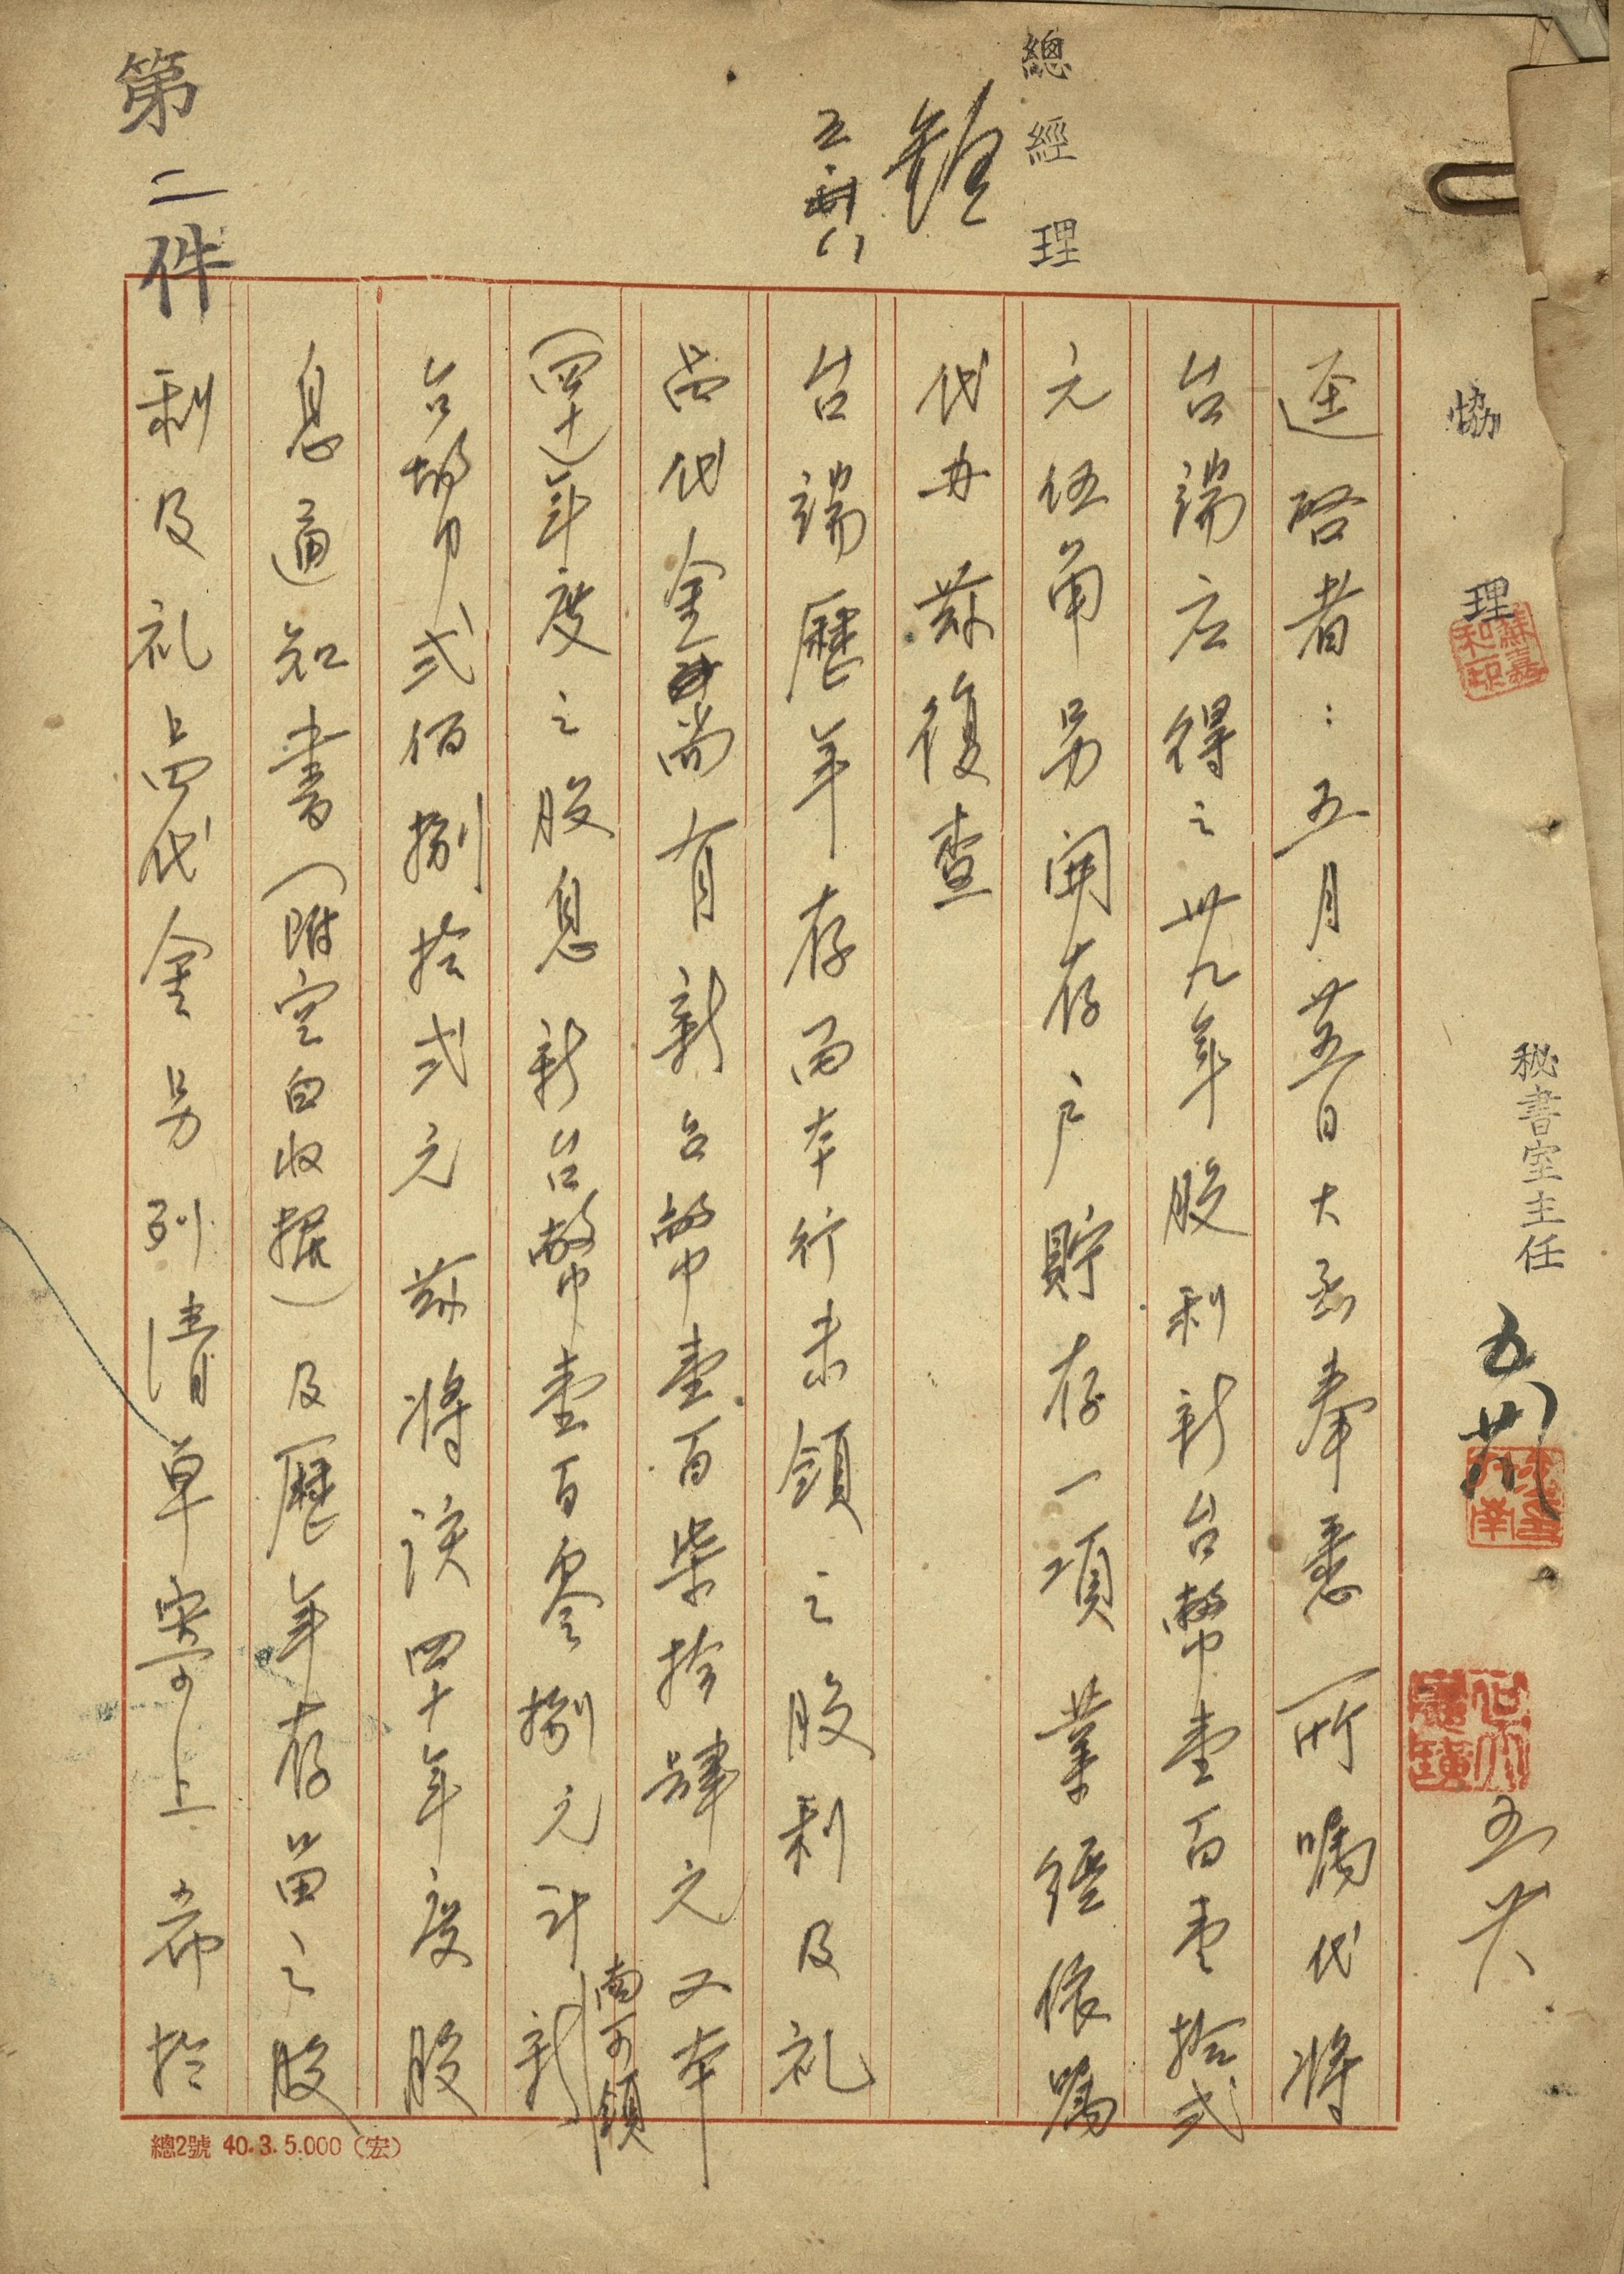 總經理
五、廿八
協理
秘書室主任
五廿八
逕啓者：五月廿五日大函奉悉所囑代將
台端应得之卅九年股利新台幣壹百壹拾弍
元伍角另開存户貯存一項業經依囑
代办茲復查
台端歷年存留本行未領之股利及礼
品代金尚有新台幣壹百柒拾肆元又本
(四十)年度之股息新台幣壹百零捌元計
尚可領
新
台幣弍佰捌拾弍元茲將該四十年度股
息通知書(附空白收據)及歷年存留之股
利及礼品代金另列清单寄上希於
第二件
總2號 40.3.5.000（宏）